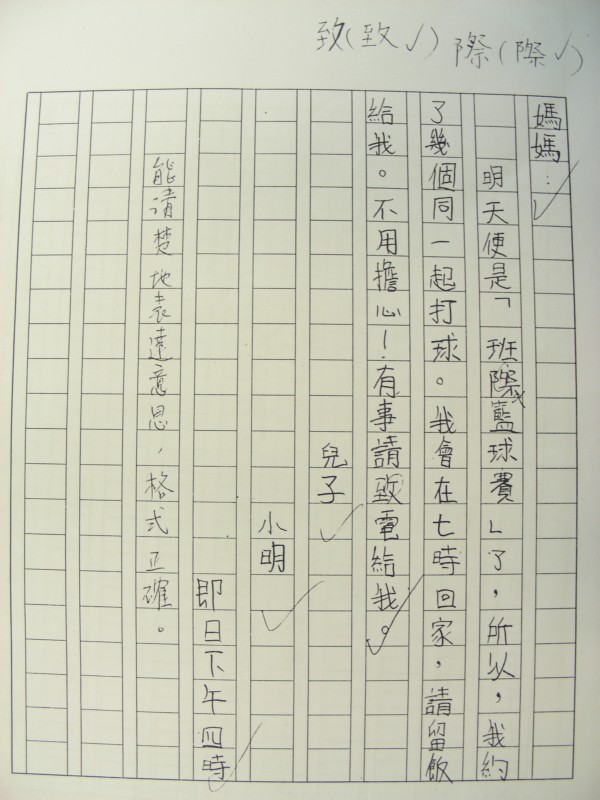 致(致✓) 際(際✓)
媽媽：
明天便是「班際籃球賽」了，所以，我約
了幾個同一起打球。我會在七時回家，請留飯
給我。不用擔心！有事請致電給我。
兒子
小明
即日下午四時
能清楚地表達意思，格式正確。